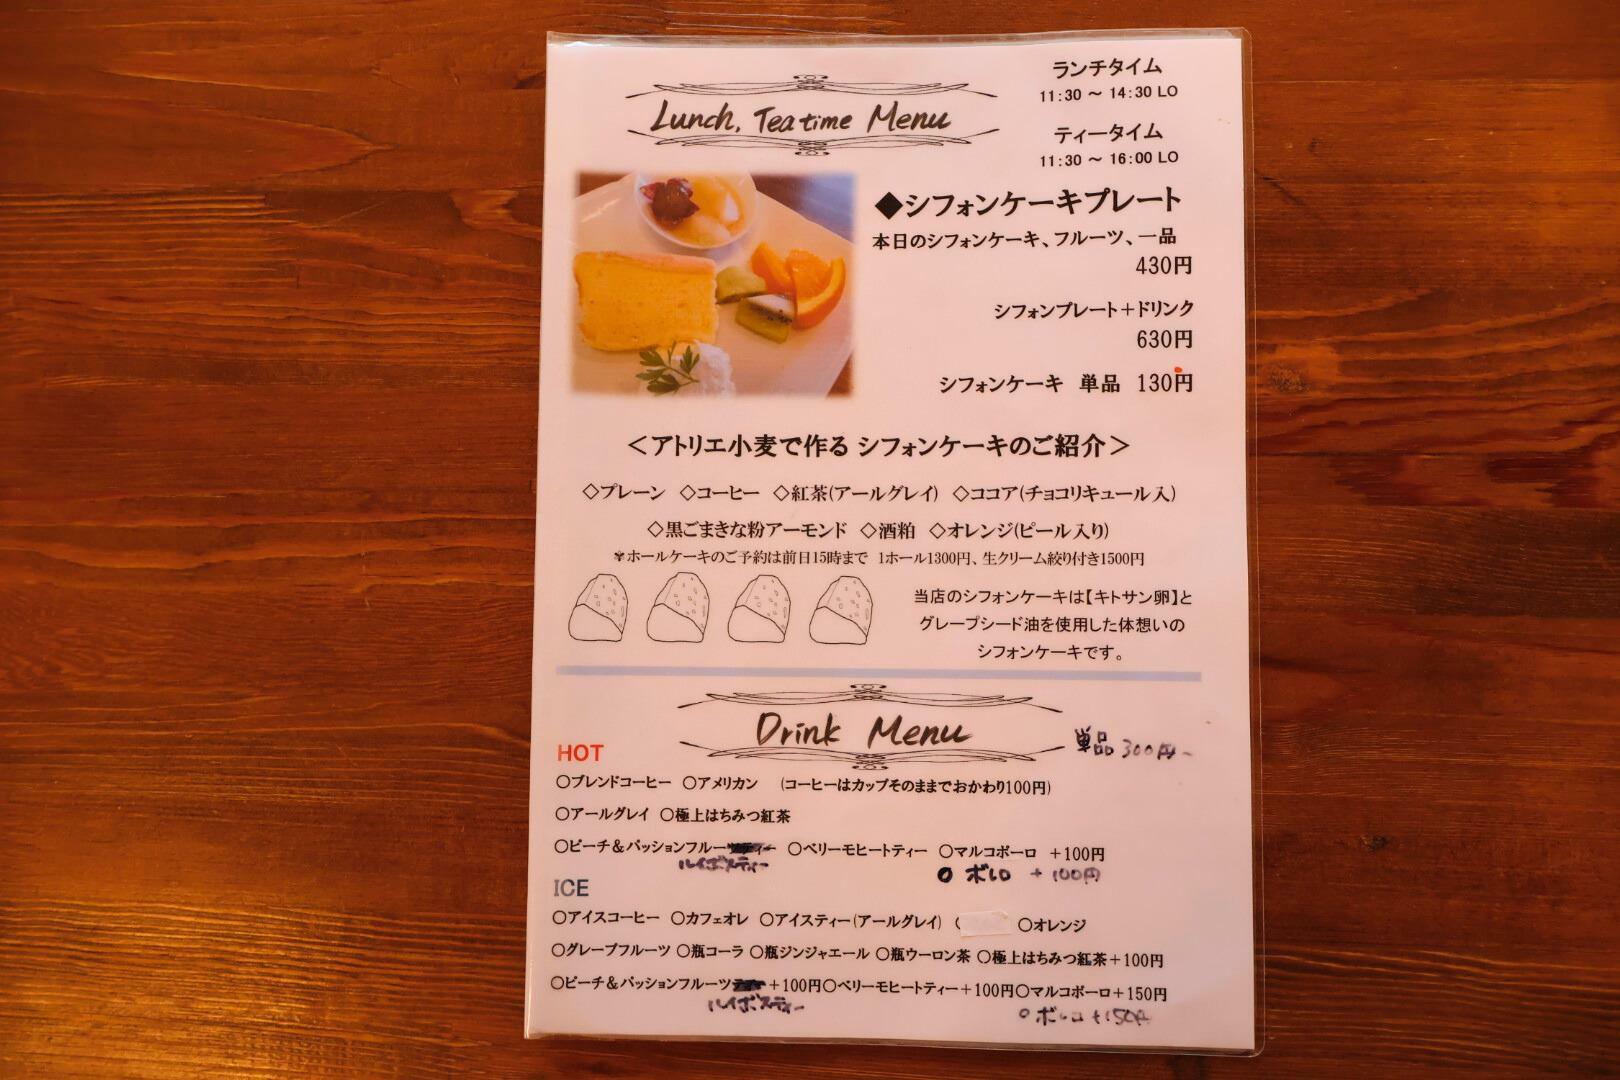 Lunch, Tea time Menu
ランチタイム
11:30 ～ 14:30 LO
ティータイム
11:30 ～ 16:00 LO
◆シフォンケーキプレート
本日のシフォンケーキ、フルーツ、一品
430円
シフォンプレート＋ドリンク
630円
シフォンケーキ 単品 130円
＜アトリエ小麦で作る シフォンケーキのご紹介＞
◇プレーン ◇コーヒー ◇紅茶(アールグレイ) ◇ココア(チョコリキュール入)
◇黒ごまきな粉アーモンド ◇酒粕 ◇オレンジ(ピール入り)
✾ホールケーキのご予約は前日15時まで 1ホール1300円、生クリーム絞り付き1500円
当店のシフォンケーキは【キトサン卵】と
グレープシード油を使用した体想いの
シフォンケーキです。
Drink Menu
単品 300円～
HOT
○ブレンドコーヒー ○アメリカン (コーヒーはカップそのままでおかわり100円)
○アールグレイ ○極上はちみつ紅茶
○ピーチ＆パッションフルー ○ベリーモヒートティー ○マルコポーロ ＋100円
ルイボスティー ○ ボレロ ＋100円
ICE
○アイスコーヒー ○カフェオレ ○アイスティー(アールグレイ) ○オレンジ
○グレープフルーツ ○瓶コーラ ○瓶ジンジャエール ○瓶ウーロン茶 ○極上はちみつ紅茶＋100円
○ピーチ＆パッションフルーツ ＋100円○ベリーモヒートティー＋100円○マルコポーロ＋150円
ルイボスティー ○ボレロ ＋150円